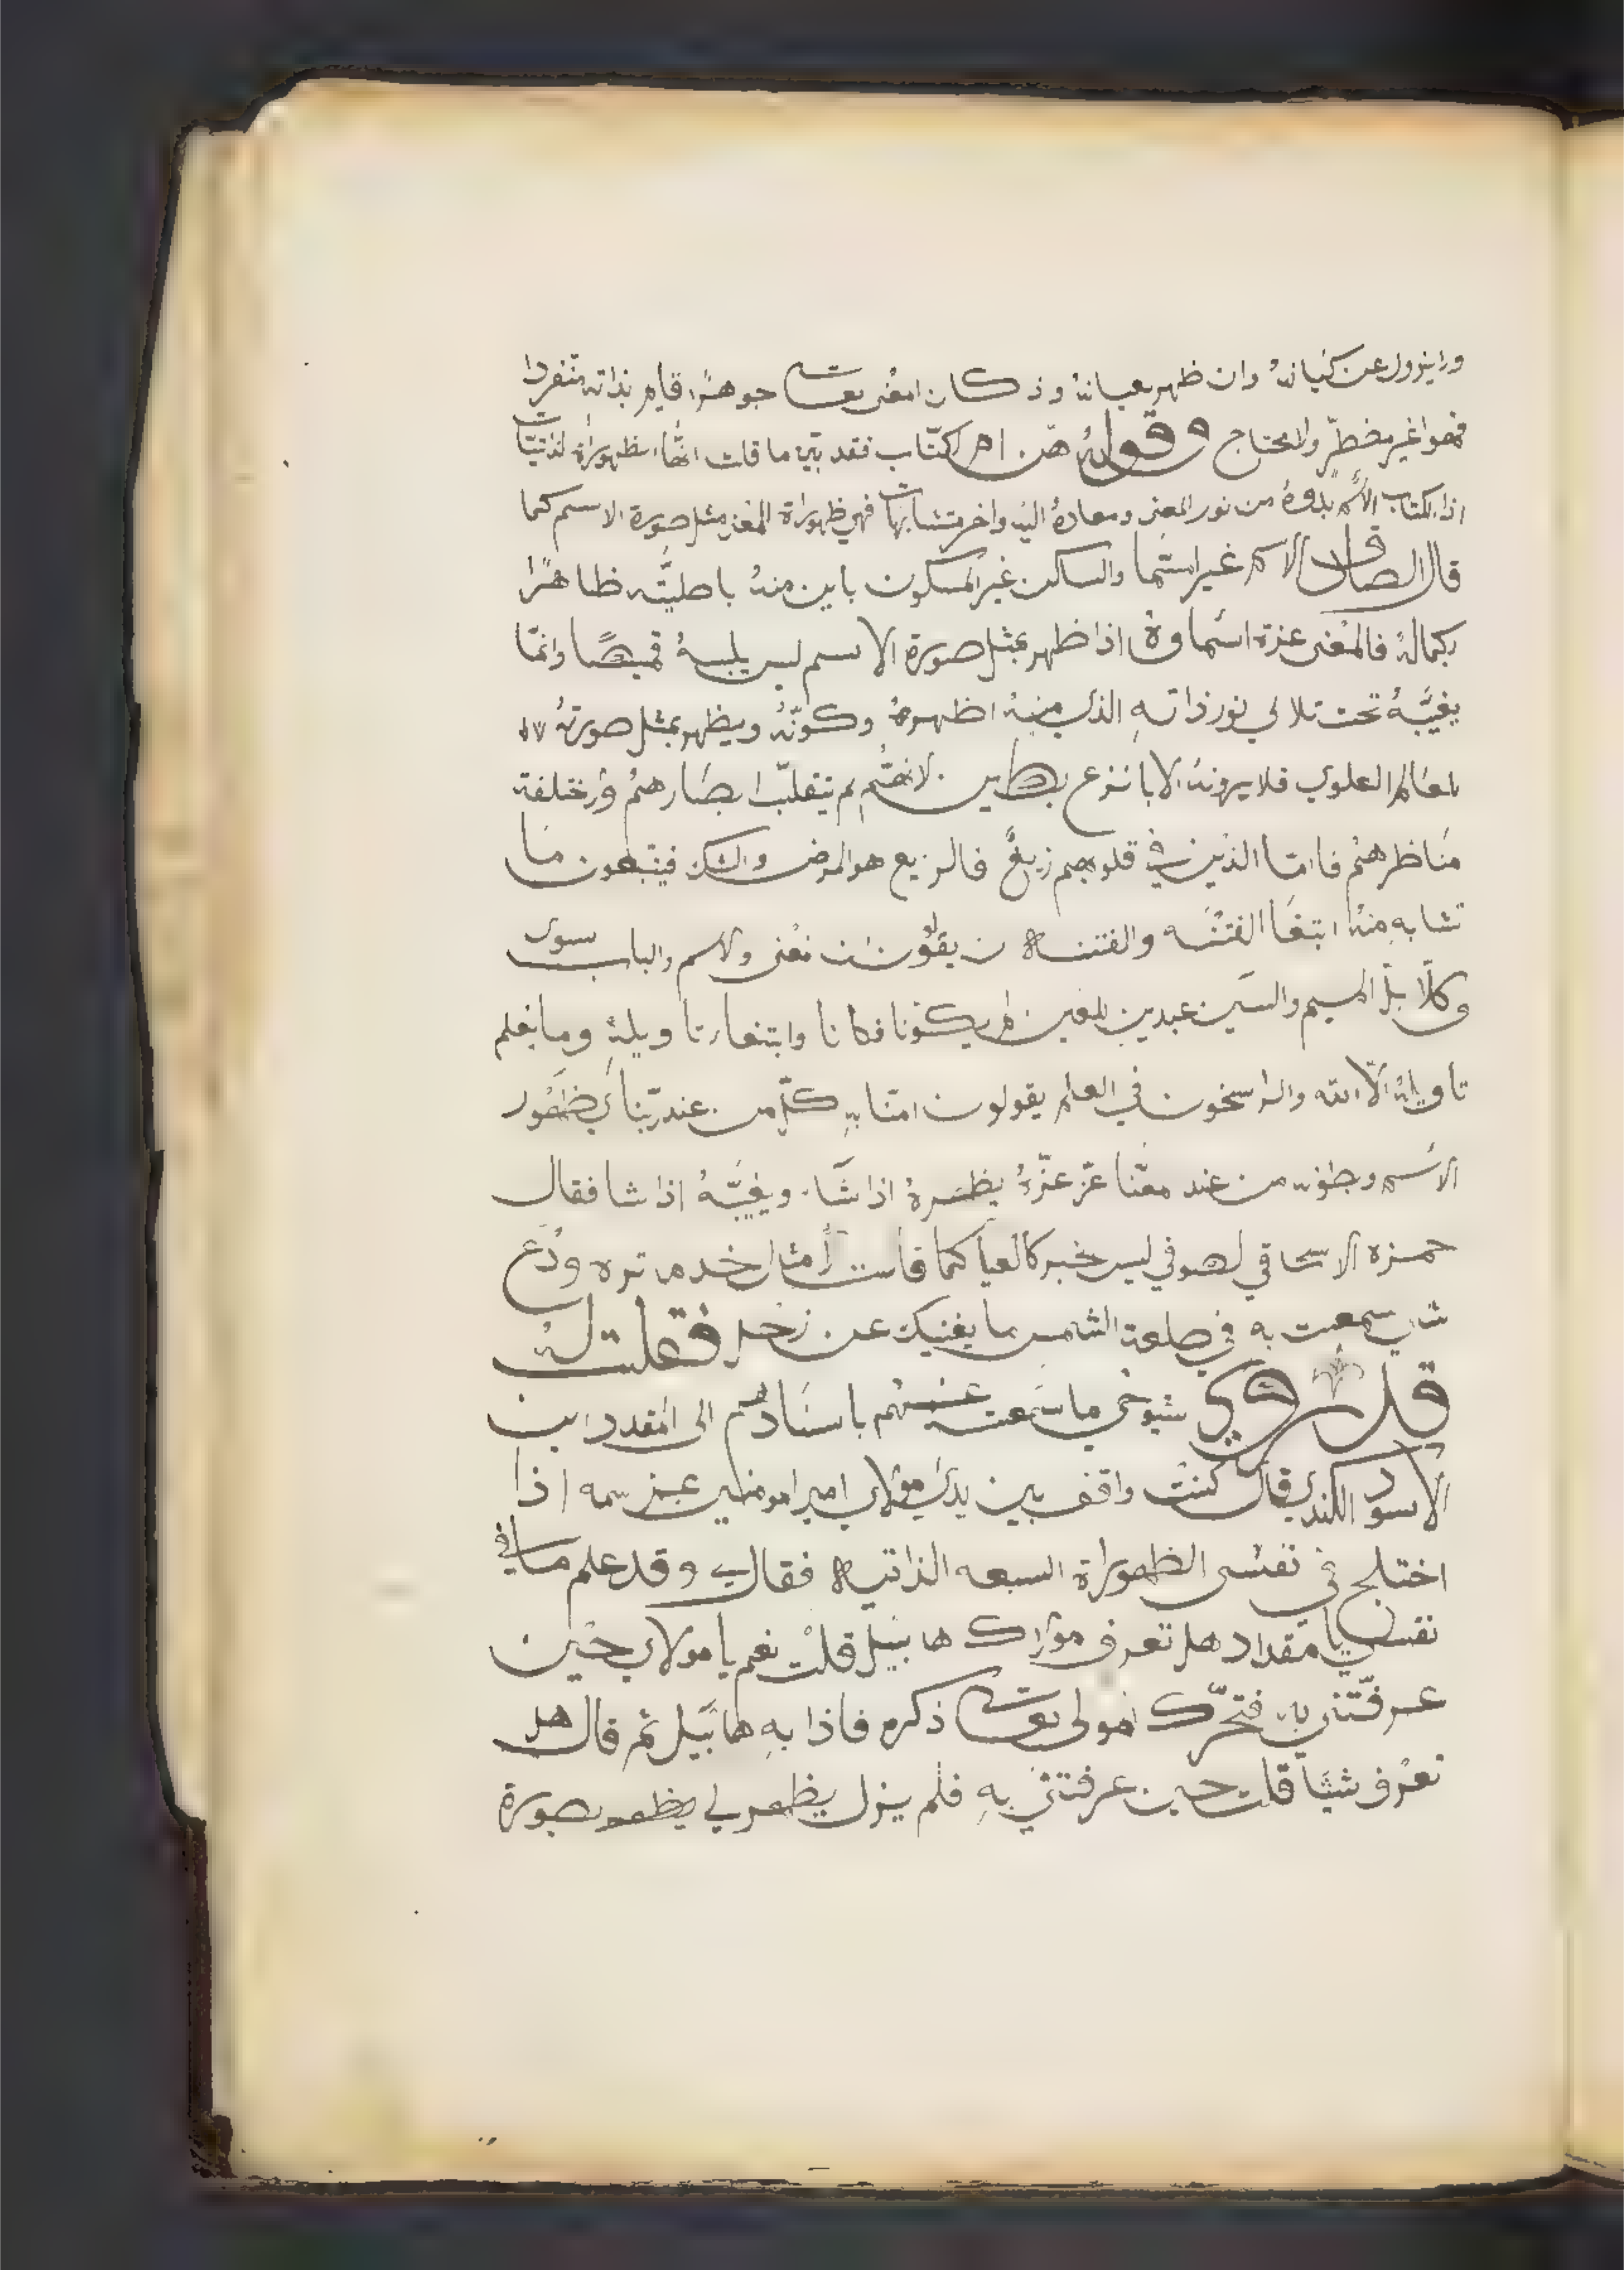 ولا يزول عن كيانهُ وان ظهر بعيانهُ وذ كان امعنى تعالى جوهرًا قايم بذاته متفردا
فهوا غير مضطرّ ولا محتاج وقولهُ هنّ ام الكتاب فقد بيّن ما قلت انها ظهوراةُ لذاتيات
اذا الكتاب الاسم بدوهُ من نور المعنى ومعادهُ اليه واخر متشابهات فهي ظهوراة المعنى مثل صورة الاسم كما
قال الصادق الاسم غير المسّما والساكن غير المسكون باين منهُ باصليّته ظاهرًا
بكمالهُ فالمعنى عزة اسماوهُ اذا ظهر بمثل صورة الاسم ليس يلبسهُ قميصًا وانّما
يغيّبهُ تحت تلالي نور ذاته الذي منهُ اظهرهُ وكوّنهُ ويظهر بمثل صورتهُ
العالم العلوي فلا يرونهُ الا بانزع بطين لانهُم لم تتقلّب ابصارهُم ومُختلفة
مناظرهُم فامّا الذين في قلوبهم زيغٌ فالزيغ هو المرض والشك فيتبعون ما
تشابه منهُ ابتغا الفتنه والفتنه ن يقولون ان معنى ولاسم والباب سوى
وكلّا بل الميم والسين عبدين للعين لم يكونا فكانا وابتغا تاويلهِ وما يعلم
تاويلهُ الّا الله والراسخون في العلم يقولون امنّا بهِ كلٌ من عند ربّنا اي ظهور
الاسم وبطونه من عند معنّا عزّ عزّهُ يظهرهُ اذا شآ ويغيّبهُ اذا شا فقال
حمزه الاسحاقي لصوفي ليس خبر كالعيا كما قاست أمثال خد ما تره ودع
شي سمعت به في طلعة الشمس ما يغنيك عن زحل فقلت لهُ
قل روي شيوخي ما سمعت عنهُم باسنادهم الى المقدد ابن
الاسود الكندي قال كنت واقف بين يدي مولاي امير امومنين عز سمه اذا
اختلج في نفسي الظهوراة السبعه الذاتيه فقال لي وقد علم ما في
نفسي يا مقداد هل تعرف مولاك هابيل قلت نعم يا مولاي حين
عرفّتني به فتحرّك امولى تعالى ذكره فاذا بهِ هابيل ثم قال هل
تعرف شيتا قلت حين عرفتني بهِ فلم يزل يظهر لي يظهر بصورة